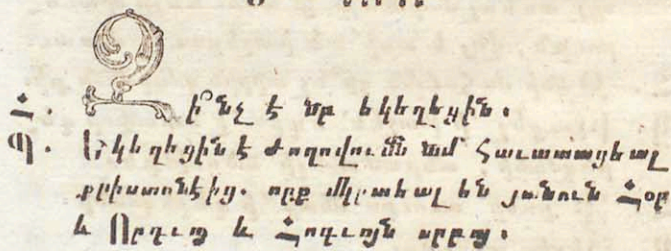 Հ. Զի՞նչ է սբ եկեղեցին.
Պ. Եկեղեցին է Ժողովումն ամ հաւատացեալ
քրիստոնէից. որք մկրտեալ են յանուն Հօր
և Որդւոյ և Հոգւոյն սրբոյ.